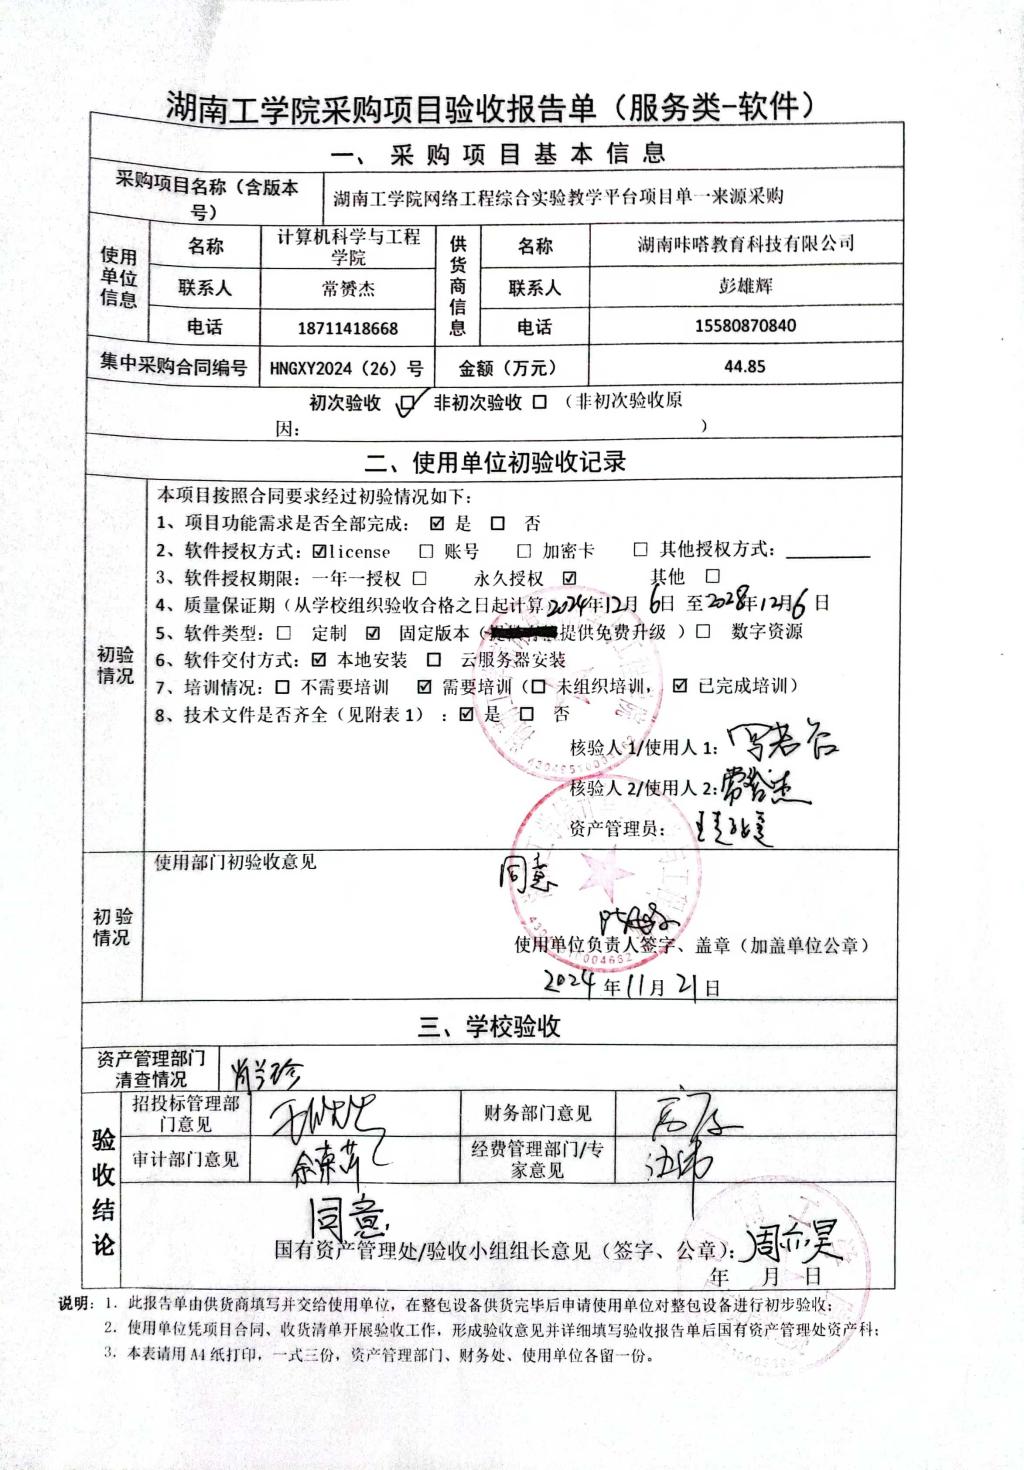 湖南工学院采购项目验收报告单（服务类-软件）
一、采购项目基本信息
采购项目名称（含版本号）
湖南工学院网络工程综合实验教学平台项目单一来源采购
使用单位信息
名称
计算机科学与工程学院
供货商信息
名称
湖南咔嗒教育科技有限公司
联系人
常赟杰
联系人
彭雄辉
电话
18711418668
电话
15580870840
集中采购合同编号
HNGXY2024（26）号
金额（万元）
44.85
初次验收 ☑ 非初次验收 □ （非初次验收原
因： ）
二、使用单位初验收记录
初验情况
本项目按照合同要求经过初验情况如下：
1、项目功能需求是否全部完成： ☑ 是 □ 否
2、软件授权方式：☑license □ 账号 □ 加密卡 □ 其他授权方式：
3、软件授权期限：一年一授权 □ 永久授权 ☑ 其他 □
4、质量保证期（从学校组织验收合格之日起计算）2024年12月6日 至2028年12月6日
5、软件类型：□ 定制 ☑ 固定版本（提供免费升级 ）□ 数字资源
6、软件交付方式：☑ 本地安装 □ 云服务器安装
7、培训情况：□ 不需要培训 ☑ 需要培训（□ 未组织培训， ☑ 已完成培训）
8、技术文件是否齐全（见附表1）：☑ 是 □ 否
核验人1/使用人1：
核验人2/使用人2：常赟杰
资产管理员：
初验情况
使用部门初验收意见
同意
使用单位负责人签字、盖章（加盖单位公章）
2024年11月21日
三、学校验收
资产管理部门清查情况
验收结论
招投标管理部门意见
财务部门意见
审计部门意见
经费管理部门/专家意见
同意
国有资产管理处/验收小组组长意见（签字、公章）：
年 月 日
说明：1. 此报告单由供货商填写并交给使用单位，在整包设备供货完毕后申请使用单位对整包设备进行初步验收；
2. 使用单位凭项目合同、收货清单开展验收工作，形成验收意见并详细填写验收报告单后国有资产管理处资产科；
3. 本表请用 A4 纸打印，一式三份，资产管理部门、财务处、使用单位各留一份。